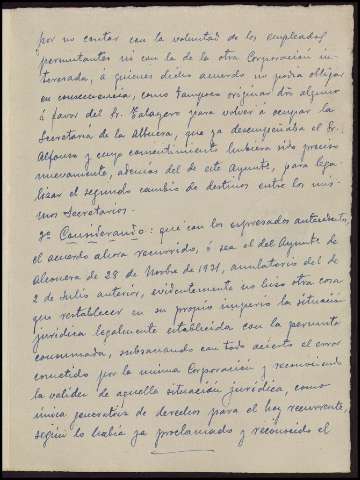 por no contar con la voluntad de los empleados
permutantes ni con la de la otra Corporación in-
teresada, á quienes dicho acuerdo no podía obligar
en consecuencia, como tampoco originar dro alguno
á favor del Sr. Talavero para volver á ocupar la
Secretaría de la Albuera, que ya desempeñaba el Sr.
Alfonso y cuyo consentimiento hubiera sido preciso
nuevamente, además del de este Ayunto, para lega-
lizar el segundo cambio de destinos entre los mis-
mos Secretarios.
3º Considerando: que con los expresados antecedentes,
el acuerdo ahora recurrido, ó sea el del Ayunto de
Alconera de 28 de Novbre de 1931, anulatorio del de
2 de Julio anterior, evidentemente no hizo otra cosa
que restablecer en su propio imperio la situación
jurídica legalmente establecida con la permuta
consumada, subsanando con todo acierto el error
cometido por la misma Corporación y reconociendo
la validez de aquella situación jurídica, como
única generatriz de derechos para el hoy recurrente,
según lo había ya proclamado y reconocido el